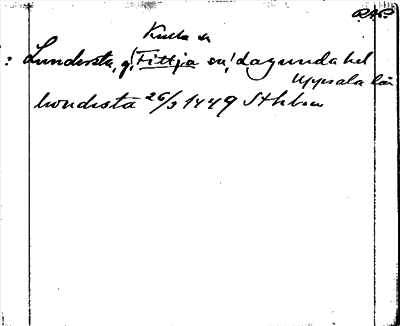 R.A.P.
Kulla sn
: Lundersta, g, Fittja sn, Lagunda hd
Uppsala län
lwndista 26/3 1449 Sthlm